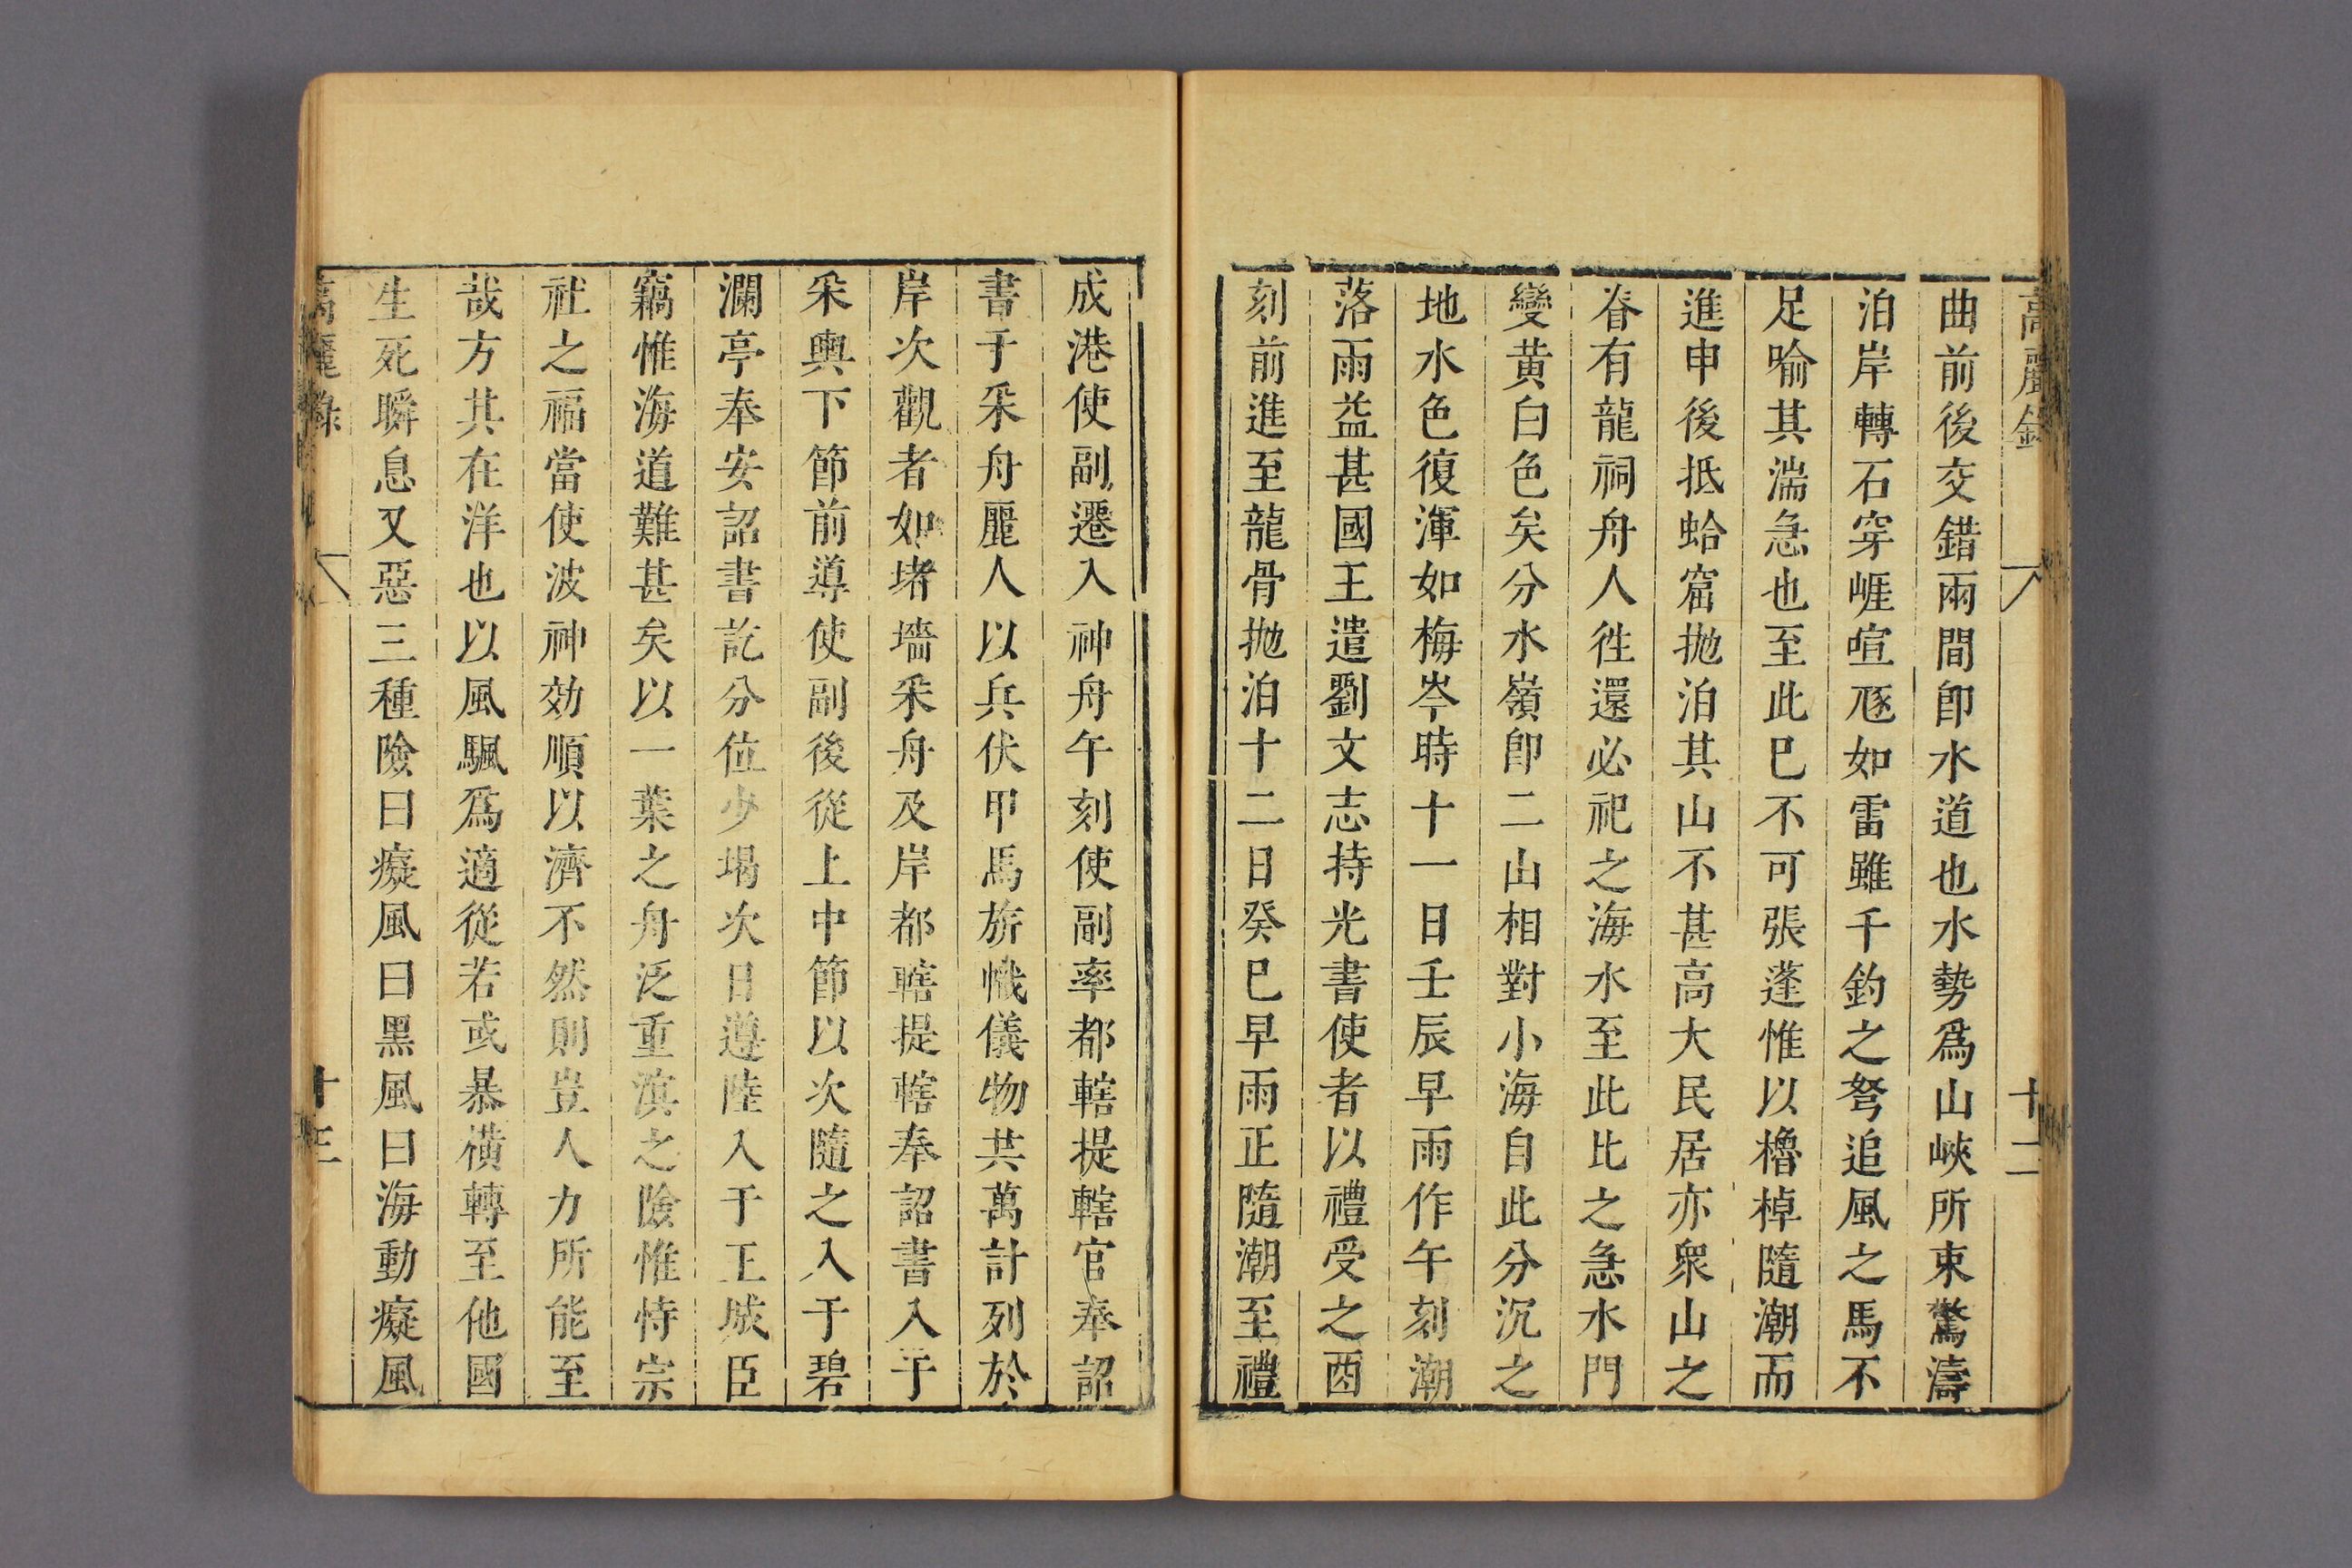 高麗錄 十二
曲前後交錯兩間卽水道也水勢爲山峽所束驚濤
泊岸轉石穿崕喧豗如雷雖千鈞之弩追風之馬不
足喻其湍急也至此巳不可張蓬惟以櫓棹隨潮而
進申後抵蛤窟拋泊其山不甚高大民居亦衆山之
脊有龍祠舟人徃還必祀之海水至此比之急水門
變黄白色矣分水嶺卽二山相對小海自此分沉之
地水色復渾如梅岑時十一日壬辰早雨作午刻潮
落雨益甚國王遣劉文志持光書使者以禮受之酉
刻前進至龍骨拋泊十二日癸巳早雨正隨潮至禮
成港使副遷入神舟午刻使副率都轄提轄官奉詔
書于采舟麗人以兵伏甲馬旂幟儀物共萬計列於
岸次觀者如堵墻采舟及岸都轄提轄奉詔書入于
采輿下節前導使副後從上中節以次隨之入于碧
瀾亭奉安詔書訖分位少堨次日遵陸入于王城臣
竊惟海道難甚矣以一葉之舟泛重溟之險惟恃宗
社之福當使波神効順以濟不然則豈人力所能至
哉方其在洋也以風颿爲適從若或暴橫轉至他國
生死瞬息又惡三種險曰癡風曰黑風曰海動癡風
高麗錄 十三